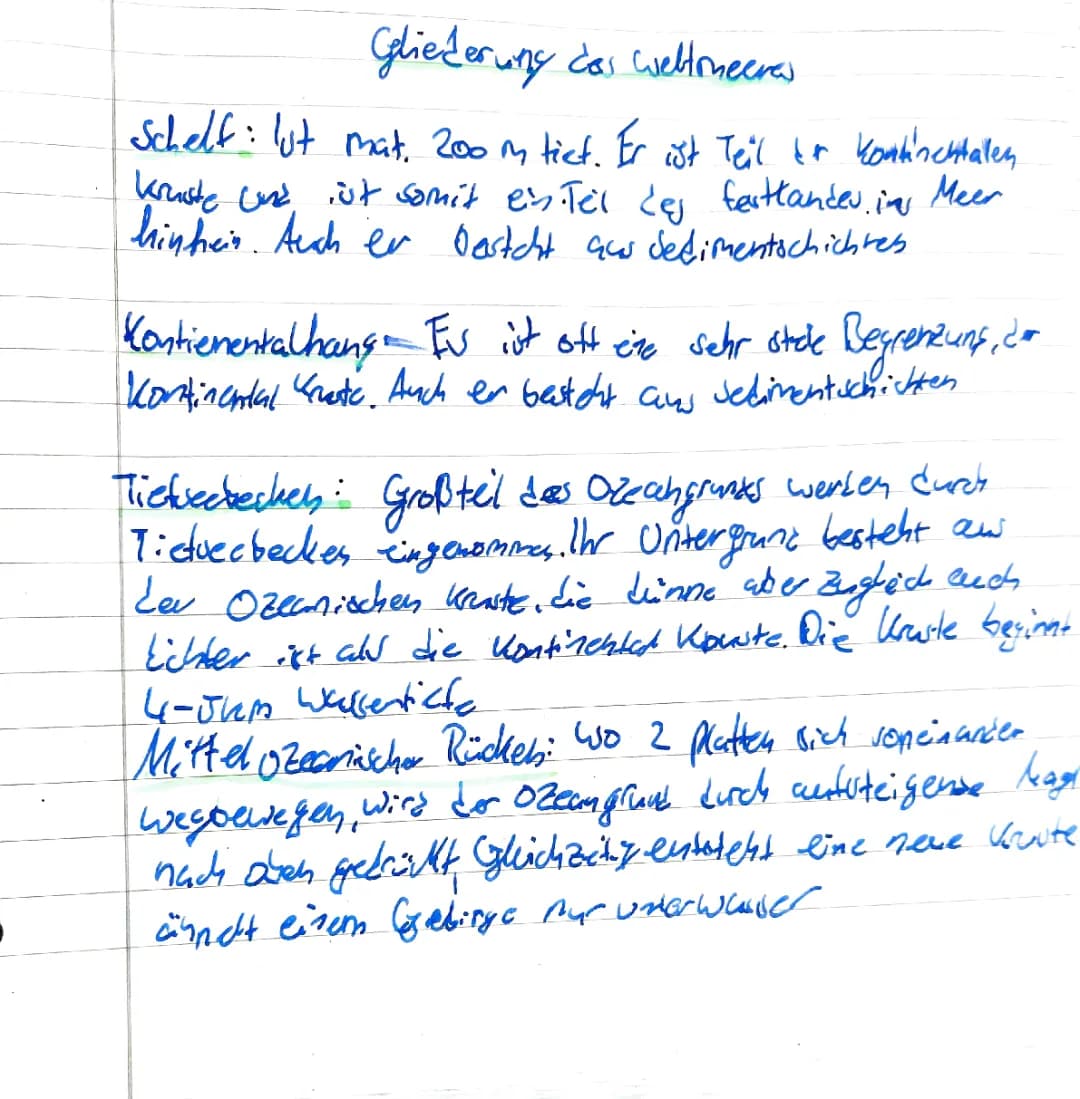 Gliederung des Weltmeeres
Schelf: Ist mat. 200 m tief. Er ist Teil der Kontinentalen
Kruste und ist somit ein Teil des Festlandes ins Meer
hinhein. Auch er besteht aus Sedimentschichten
Kontienentalhang - Es ist oft eine sehr steile Begrenzung, der
Kontinental Kruste. Auch er besteht aus Sedimentschichten
Tiefseebecken: Großteil des Ozeangrundes werden durch
Tiefseebecken eingenommen. Ihr Untergrund besteht aus
der Ozeanischen Kruste, die dünne aber zugleich auch
dichter ist als die Kontinental Kruste. Die Kruste beginnt
4-5km Wassertiefe
Mittel ozeanischer Rücken: Wo 2 Platten sich voneinander
wegbewegen, wird der Ozeangrund durch aufsteigende Mag
nach oben gedrückt, Gleichzeitig entsteht eine neue Kruste
ähnelt einem Gebirge nur unterwasser